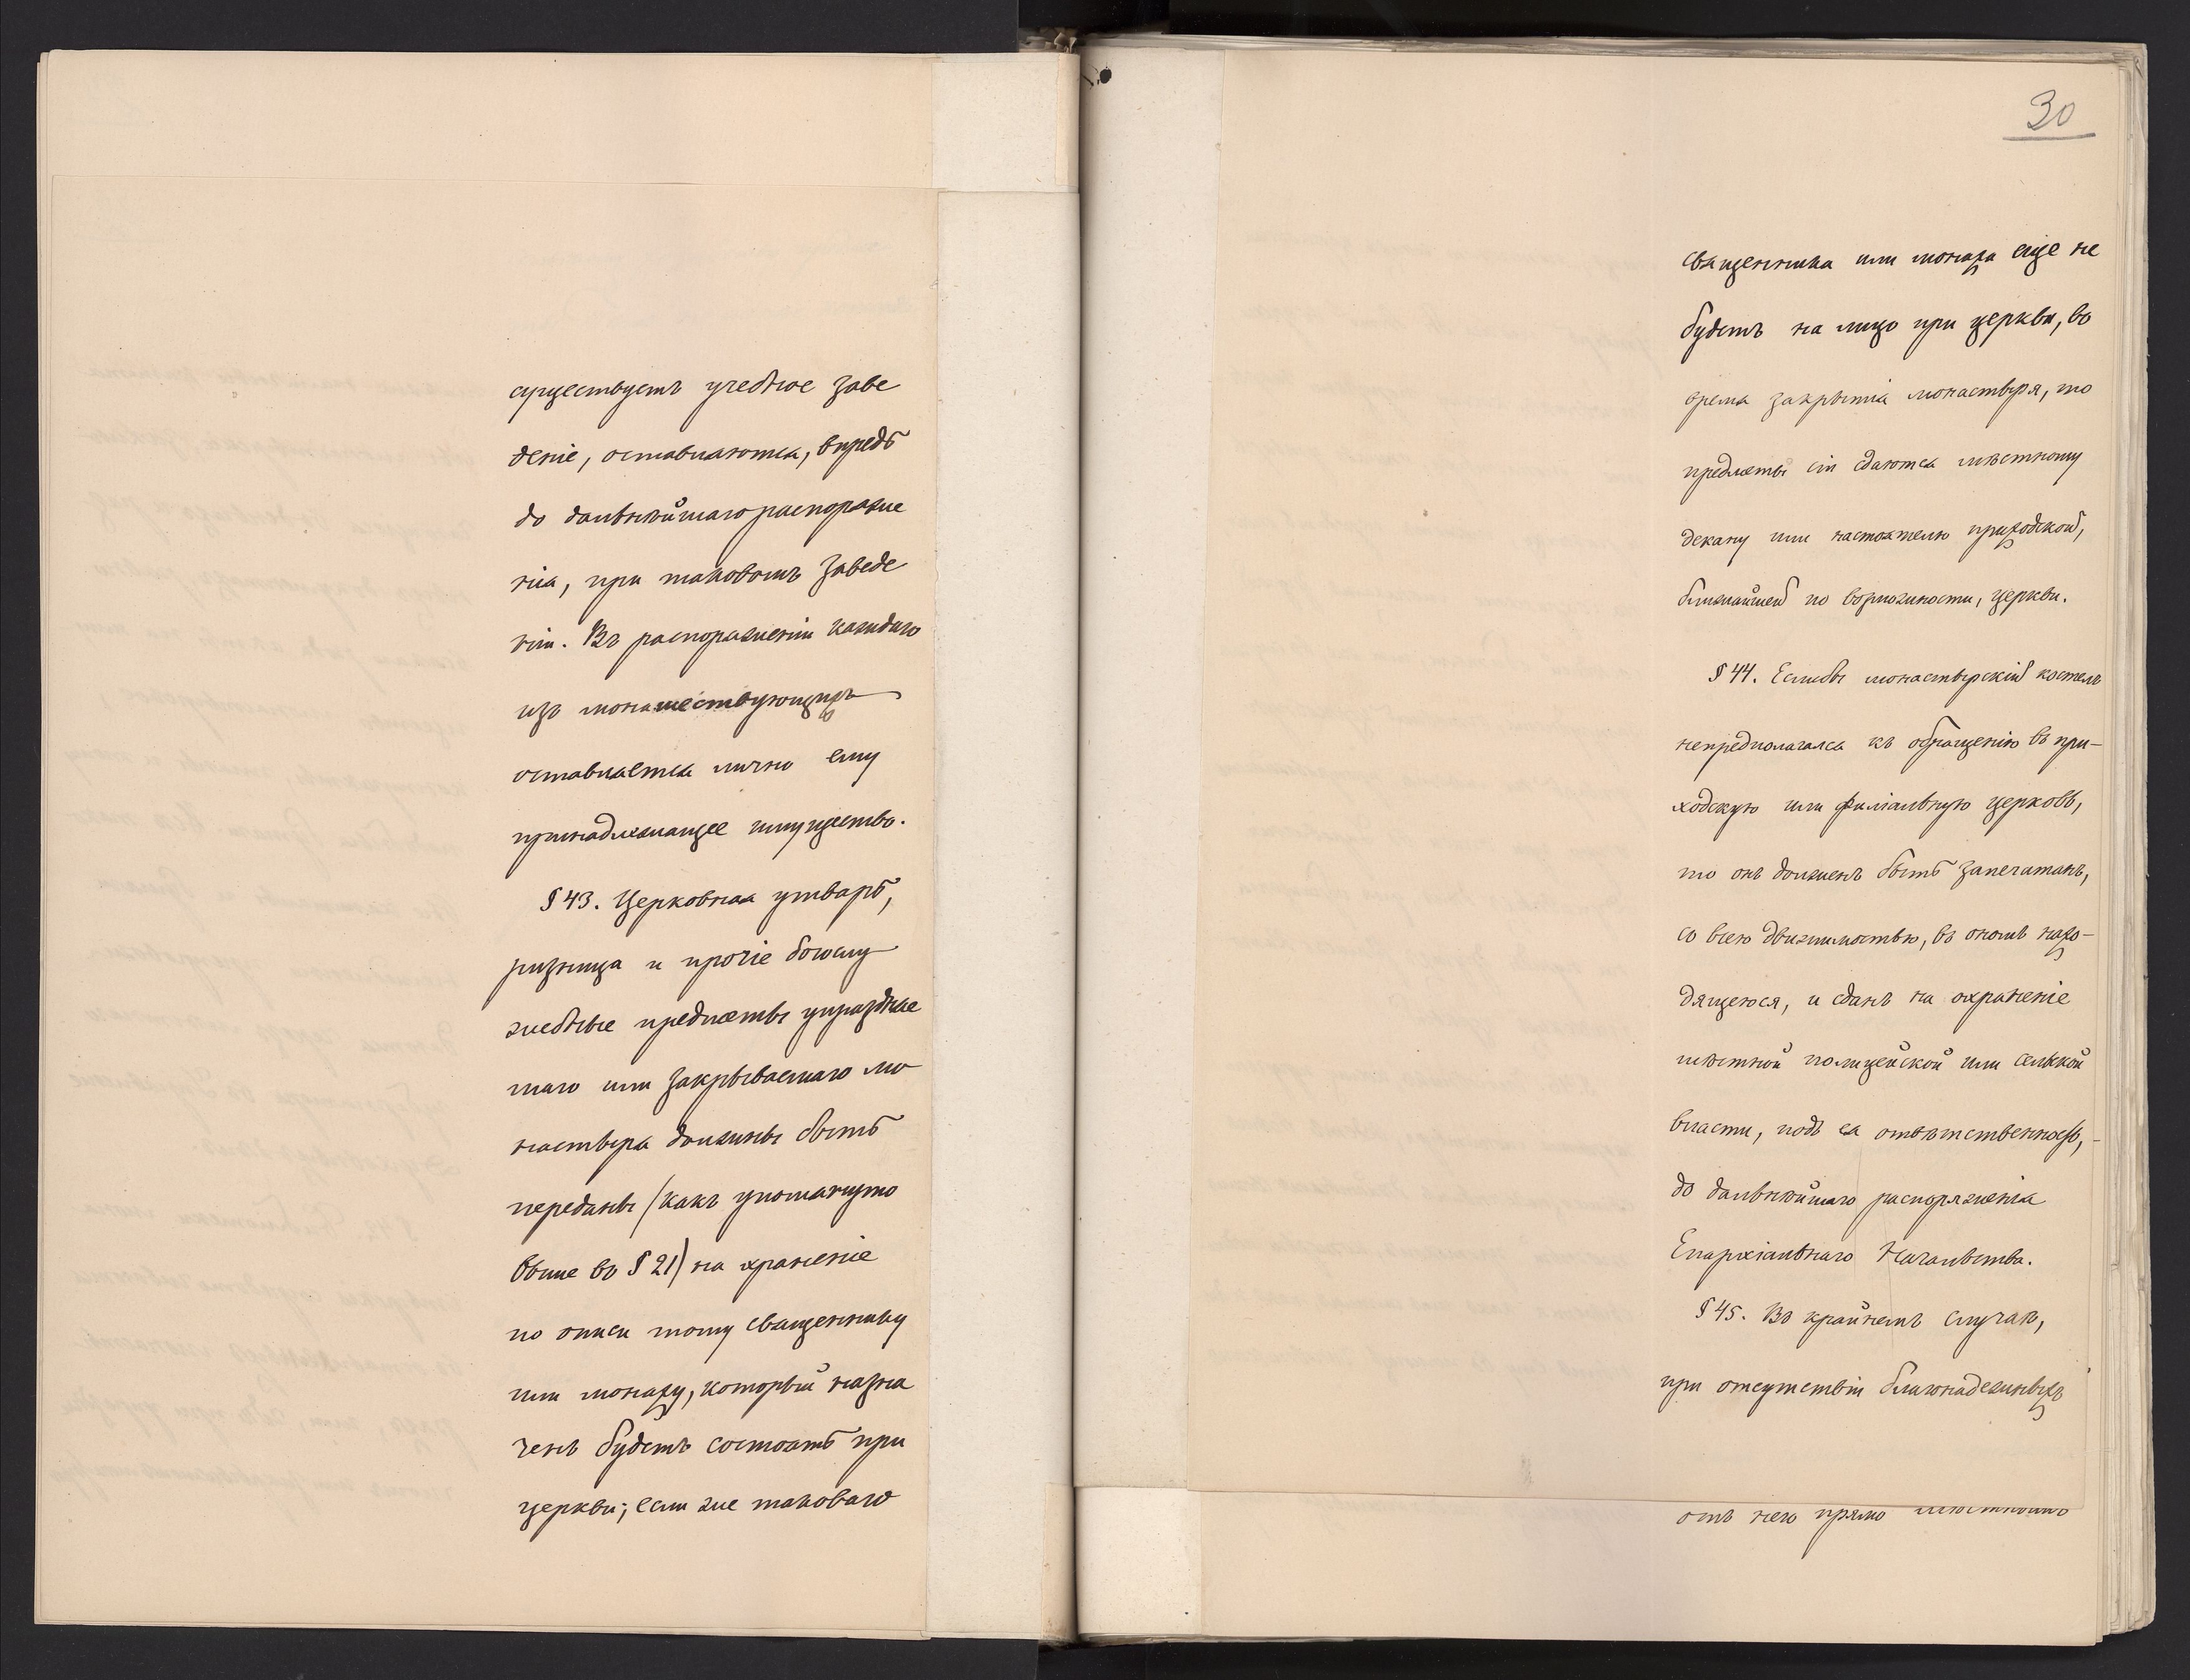 существуетъ учебное заве
деніе, оставляются, впредь
до дальнѣйшаго распоряже
нія, при таковомъ заведе
ніи. Въ распоряженіи каждаго
изъ монашествующихъ
оставляется лично ему
принадлежащее имущество.
§ 43. Церковная утварь,
ризница и прочіе богослу
жебные предметы упраздняе
маго или закрываемаго мо
настыря должны быть
переданы (какъ упомянуто
выше въ § 21) на храненіе
по описи тому священнику
или монаху, который назна
ченъ будетъ состоять при
церкви; если же таковаго
30
священника или монаха еще не
будетъ на лицо при церкви, во
время закрытія монастыря, то
предметы сіи сдаются мѣстному
декану или настоятелю приходской,
ближайшей по возможности, церкви.
§ 44. Еслибы монастырскій костелъ
непредполагался къ обращенію въ при-
ходскую или филіальную церковь,
то онъ долженъ быть запечатанъ,
со всею движимостью, въ ономъ нахо-
дящеюся, и сданъ на охраненіе
мѣстной полицейской или сельской
власти, подъ ея отвѣтственность,
до дальнѣйшаго распоряженія
Епархіальнаго Начальства.
§ 45. Въ крайнемъ случаѣ,
при отсутствіи благонадежныхъ
отъ него прямо